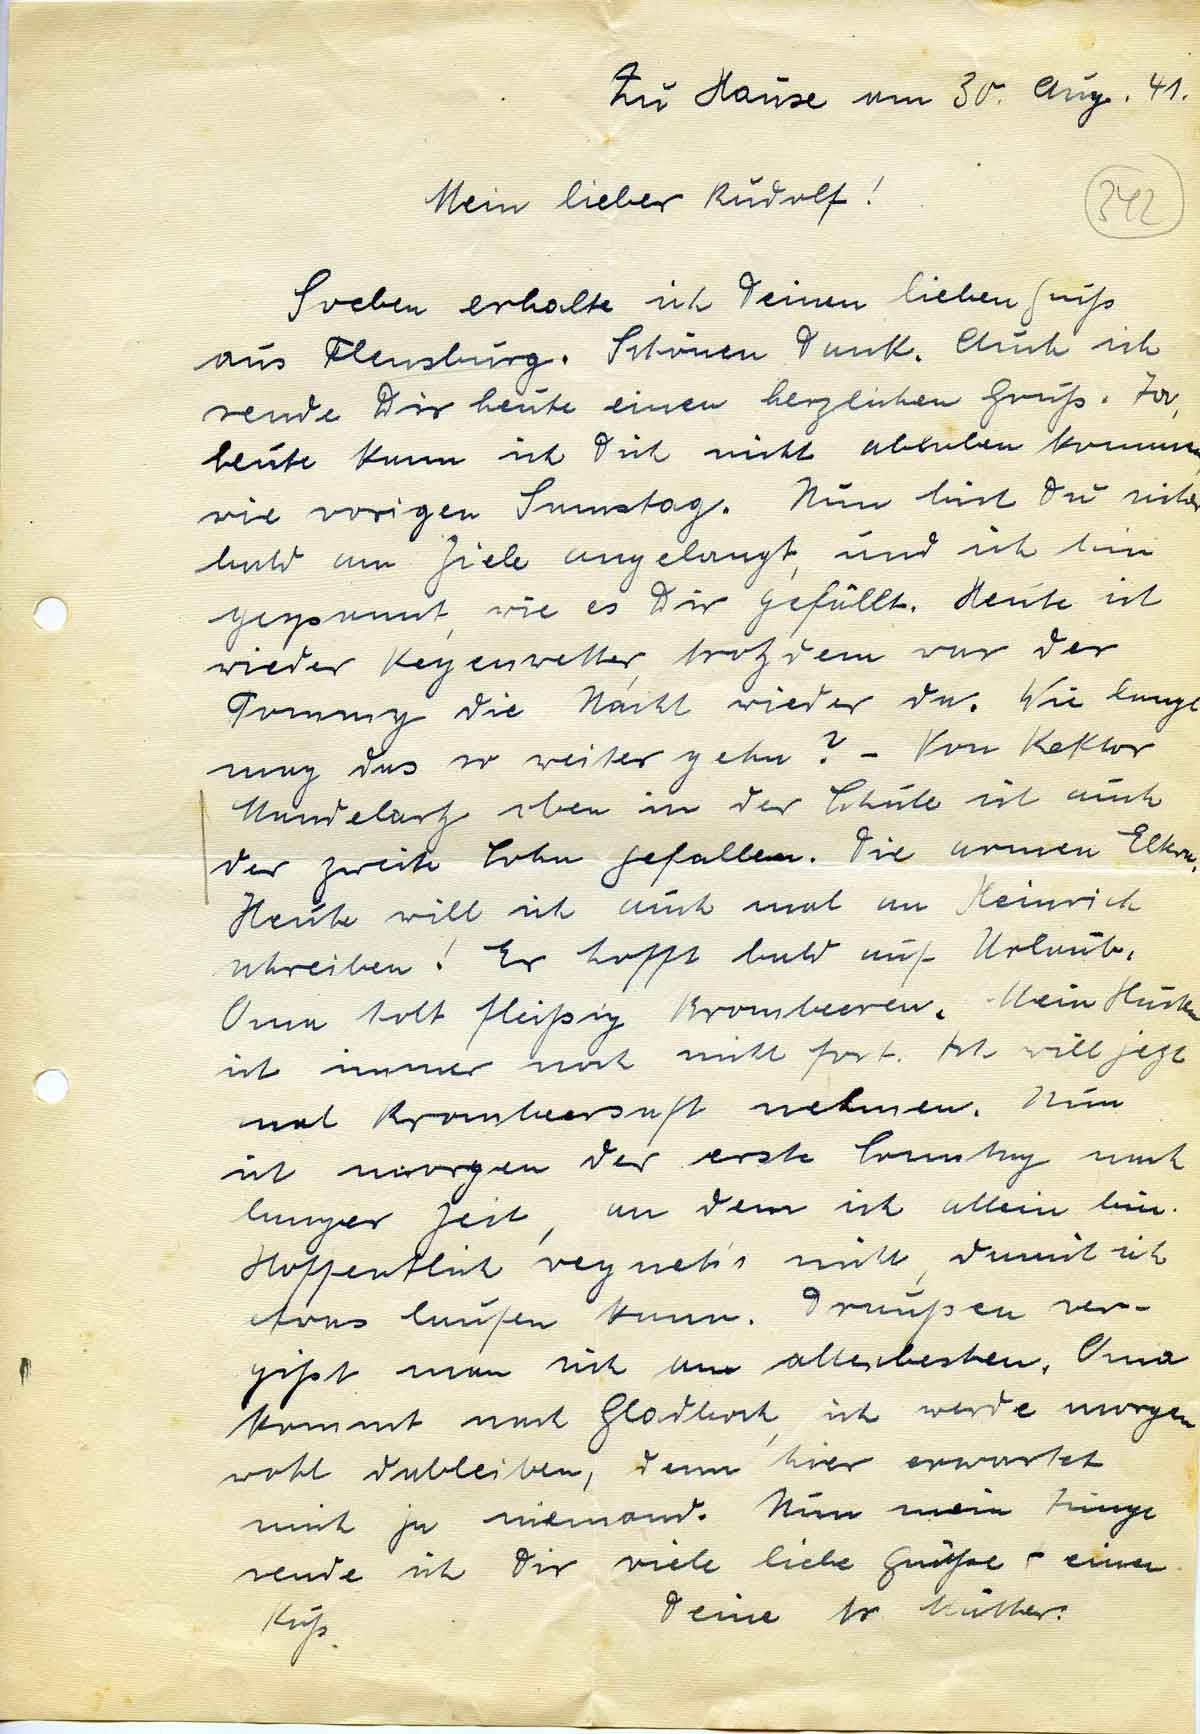 Zu Hause am 30. Aug. 41.
342
Mein lieber Rudolf!
Soeben erhalte ich Deinen lieben Gruß
aus Flensburg. Schönen Dank. Auch ich
sende Dir heute einen herzlichen Gruß. Ja,
heute kann ich Dich nicht abholen kommen
wie vorigen Samstag. Nun bist Du sicher
bald am Ziele angelangt, und ich bin
gespannt, wie es Dir gefällt. Heute ist
wieder Regenwetter, trotzdem war der
Tommy die Nacht wieder da. Wie lange
mag das so weiter gehn? – Von Rektor
Mundelartz oben in der Schule ist auch
der zweite Sohn gefallen. Die armen Eltern.
Heute will ich auch mal an Heinrich
schreiben! Er hofft bald auf Urlaub.
Oma holt fleißig Brombeeren. Mein Husten
ist immer noch nicht fort. Ich will jetzt
mal Brombeersaft nehmen. Nun
ist morgen der erste Sonntag nach
langer Zeit, an dem ich allein bin.
Hoffentlich regnet's nicht, damit ich
etwas laufen kann. Draußen ver-
gißt man sich am allerbesten. Oma
kommt nach Gladbach, ich werde morgen
wohl dableiben, denn hier erwartet
mich ja niemand. Nun mein Junge
sende ich Dir viele liebe Grüße + einen
Kuß. Deine tr. Mutter.